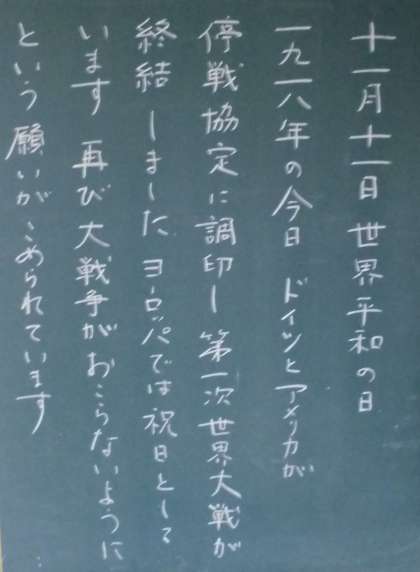 十一月十一日 世界平和の日
一九一八年の今日 ドイツとアメリカが
停戦協定に調印し 第一次世界大戦が
終結しました ヨーロッパでは祝日として
います 再び大戦争がおこらないように
という願いがこめられています